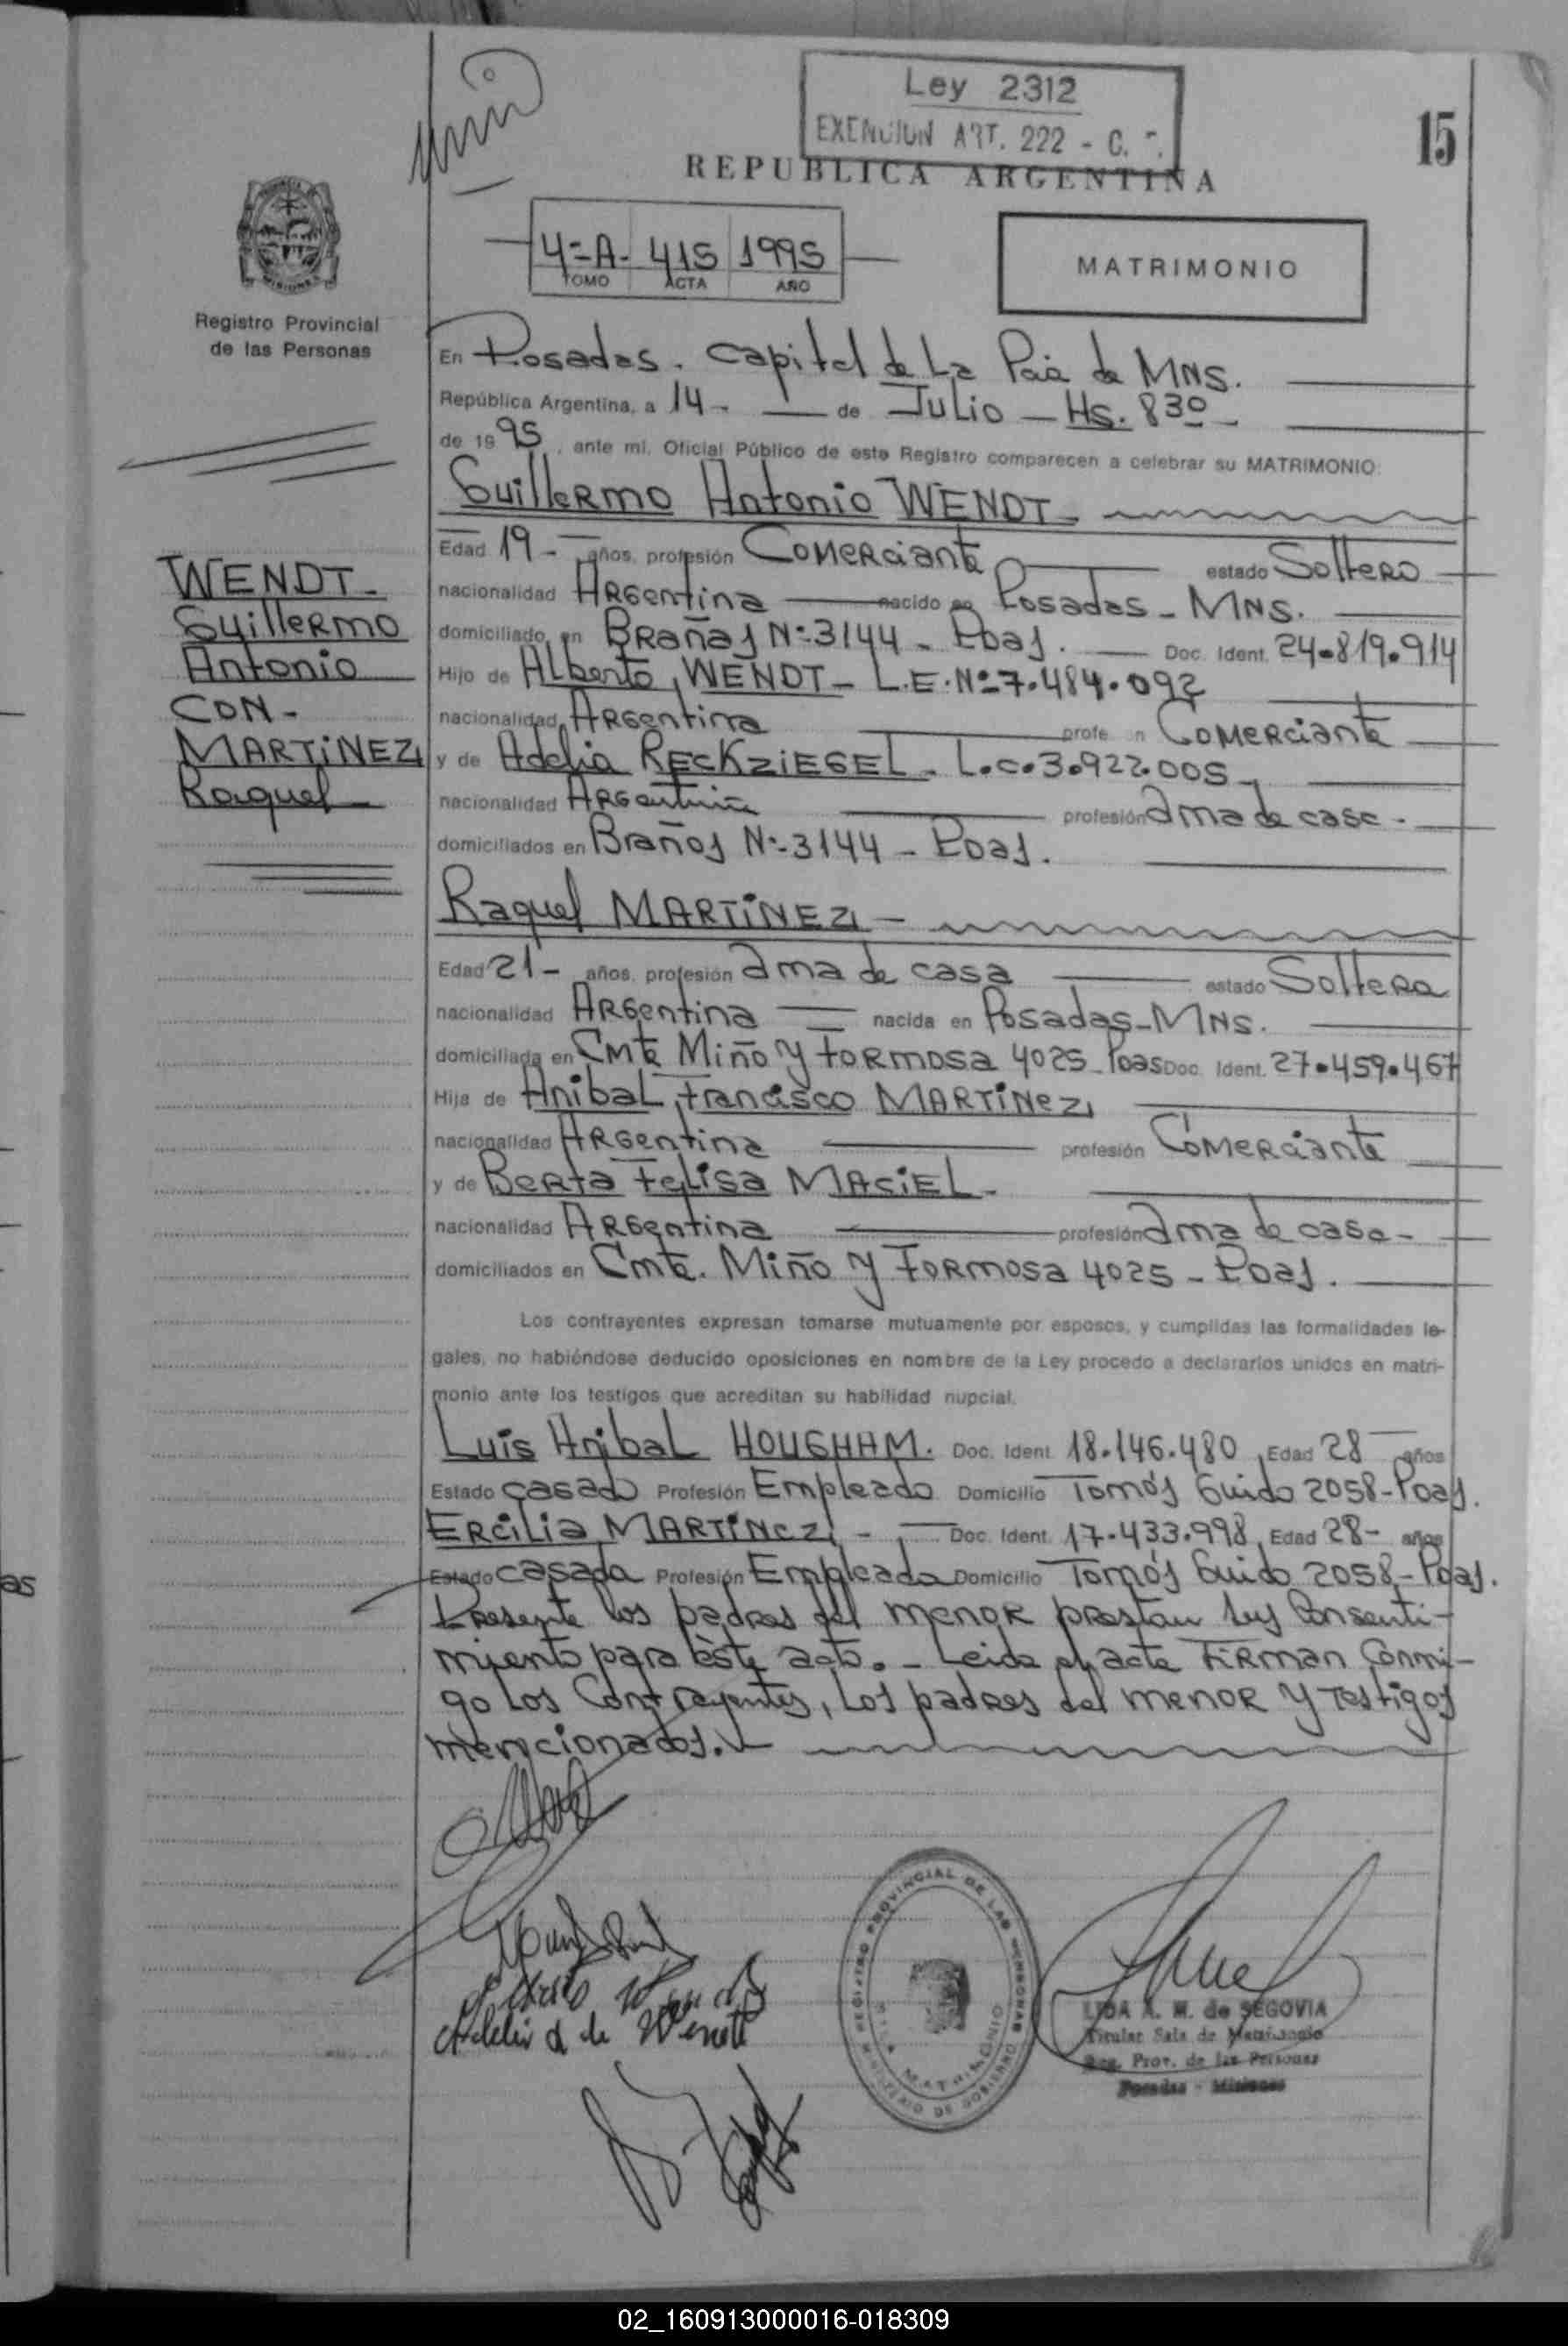 Ley 2312
EXENCION ART. 222 - C.
15
REPUBLICA ARGENTINA
4=A- 415 1995
TOMO ACTA AÑO
MATRIMONIO
MISIONES
Registro Provincial
de las Personas
WENDT-
Guillermo
Antonio
CON-
MARTINEZ
Raquel
En Posadas. Capital de La Pcia de MNS.
República Argentina, a 14- de Julio - Hs. 830-
de 1995, ante mi, Oficial Público de este Registro comparecen a celebrar su MATRIMONIO:
Guillermo Antonio WENDT-
Edad 19- años, profesión Comerciante estado Soltero
nacionalidad Argentina nacido en Posadas - MNS.
domiciliado en Brañas Nº 3144 - Pdas. Doc. Ident. 24.819.914
Hijo de Alberto WENDT - L.E. Nº 7.484.092
nacionalidad Argentina profe n Comerciante
y de Adelia RECKZIEGEL - L.C. 3.922.005-
nacionalidad Argentina profesión ama de casa.
domiciliados en Brañas Nº 3144 - Pdas.
Raquel MARTINEZ -
Edad 21- años, profesión ama de casa estado Soltera
nacionalidad Argentina nacida en Posadas-MNS.
domiciliada en Cmte Miño y Formosa 4025-Pdas Doc. Ident. 27.459.467
Hija de Anibal Francisco MARTINEZ
nacionalidad Argentina profesión Comerciante
y de Berta Felisa MACIEL-
nacionalidad Argentina profesión ama de casa-
domiciliados en Cmte. Miño y Formosa 4025 - Pdas.
Los contrayentes expresan tomarse mutuamente por esposos, y cumplidas las formalidades le-
gales, no habiéndose deducido oposiciones en nombre de la Ley procedo a declararlos unidos en matri-
monio ante los testigos que acreditan su habilidad nupcial.
Luis Anibal HOUGHAM. Doc. Ident. 18.146.480, Edad 28 años
Estado casado Profesión Empleado Domicilio Tomás Guido 2058-Pdas.
Ercilia MARTINEZ - Doc. Ident. 17.433.998, Edad 28- años
Estado casada Profesión Empleada Domicilio Tomás Guido 2058-Pdas.
as
Presente los padres del menor prestan sus Consenti-
miento para èste acto. - Leida el acta Firman Conmi-
go los Contrayentes, los padres del menor y testigos
mencionados.
Adelia R de Wendt
REGISTRO PROVINCIAL DE LAS PERSONAS
SALA MATRIMONIO
MINISTERIO DE GOBIERNO
LIDA A. M. de SEGOVIA
Titular Sala de Matrimonio
Reg. Prov. de las Personas
Posadas - Misiones
02_160913000016-018309